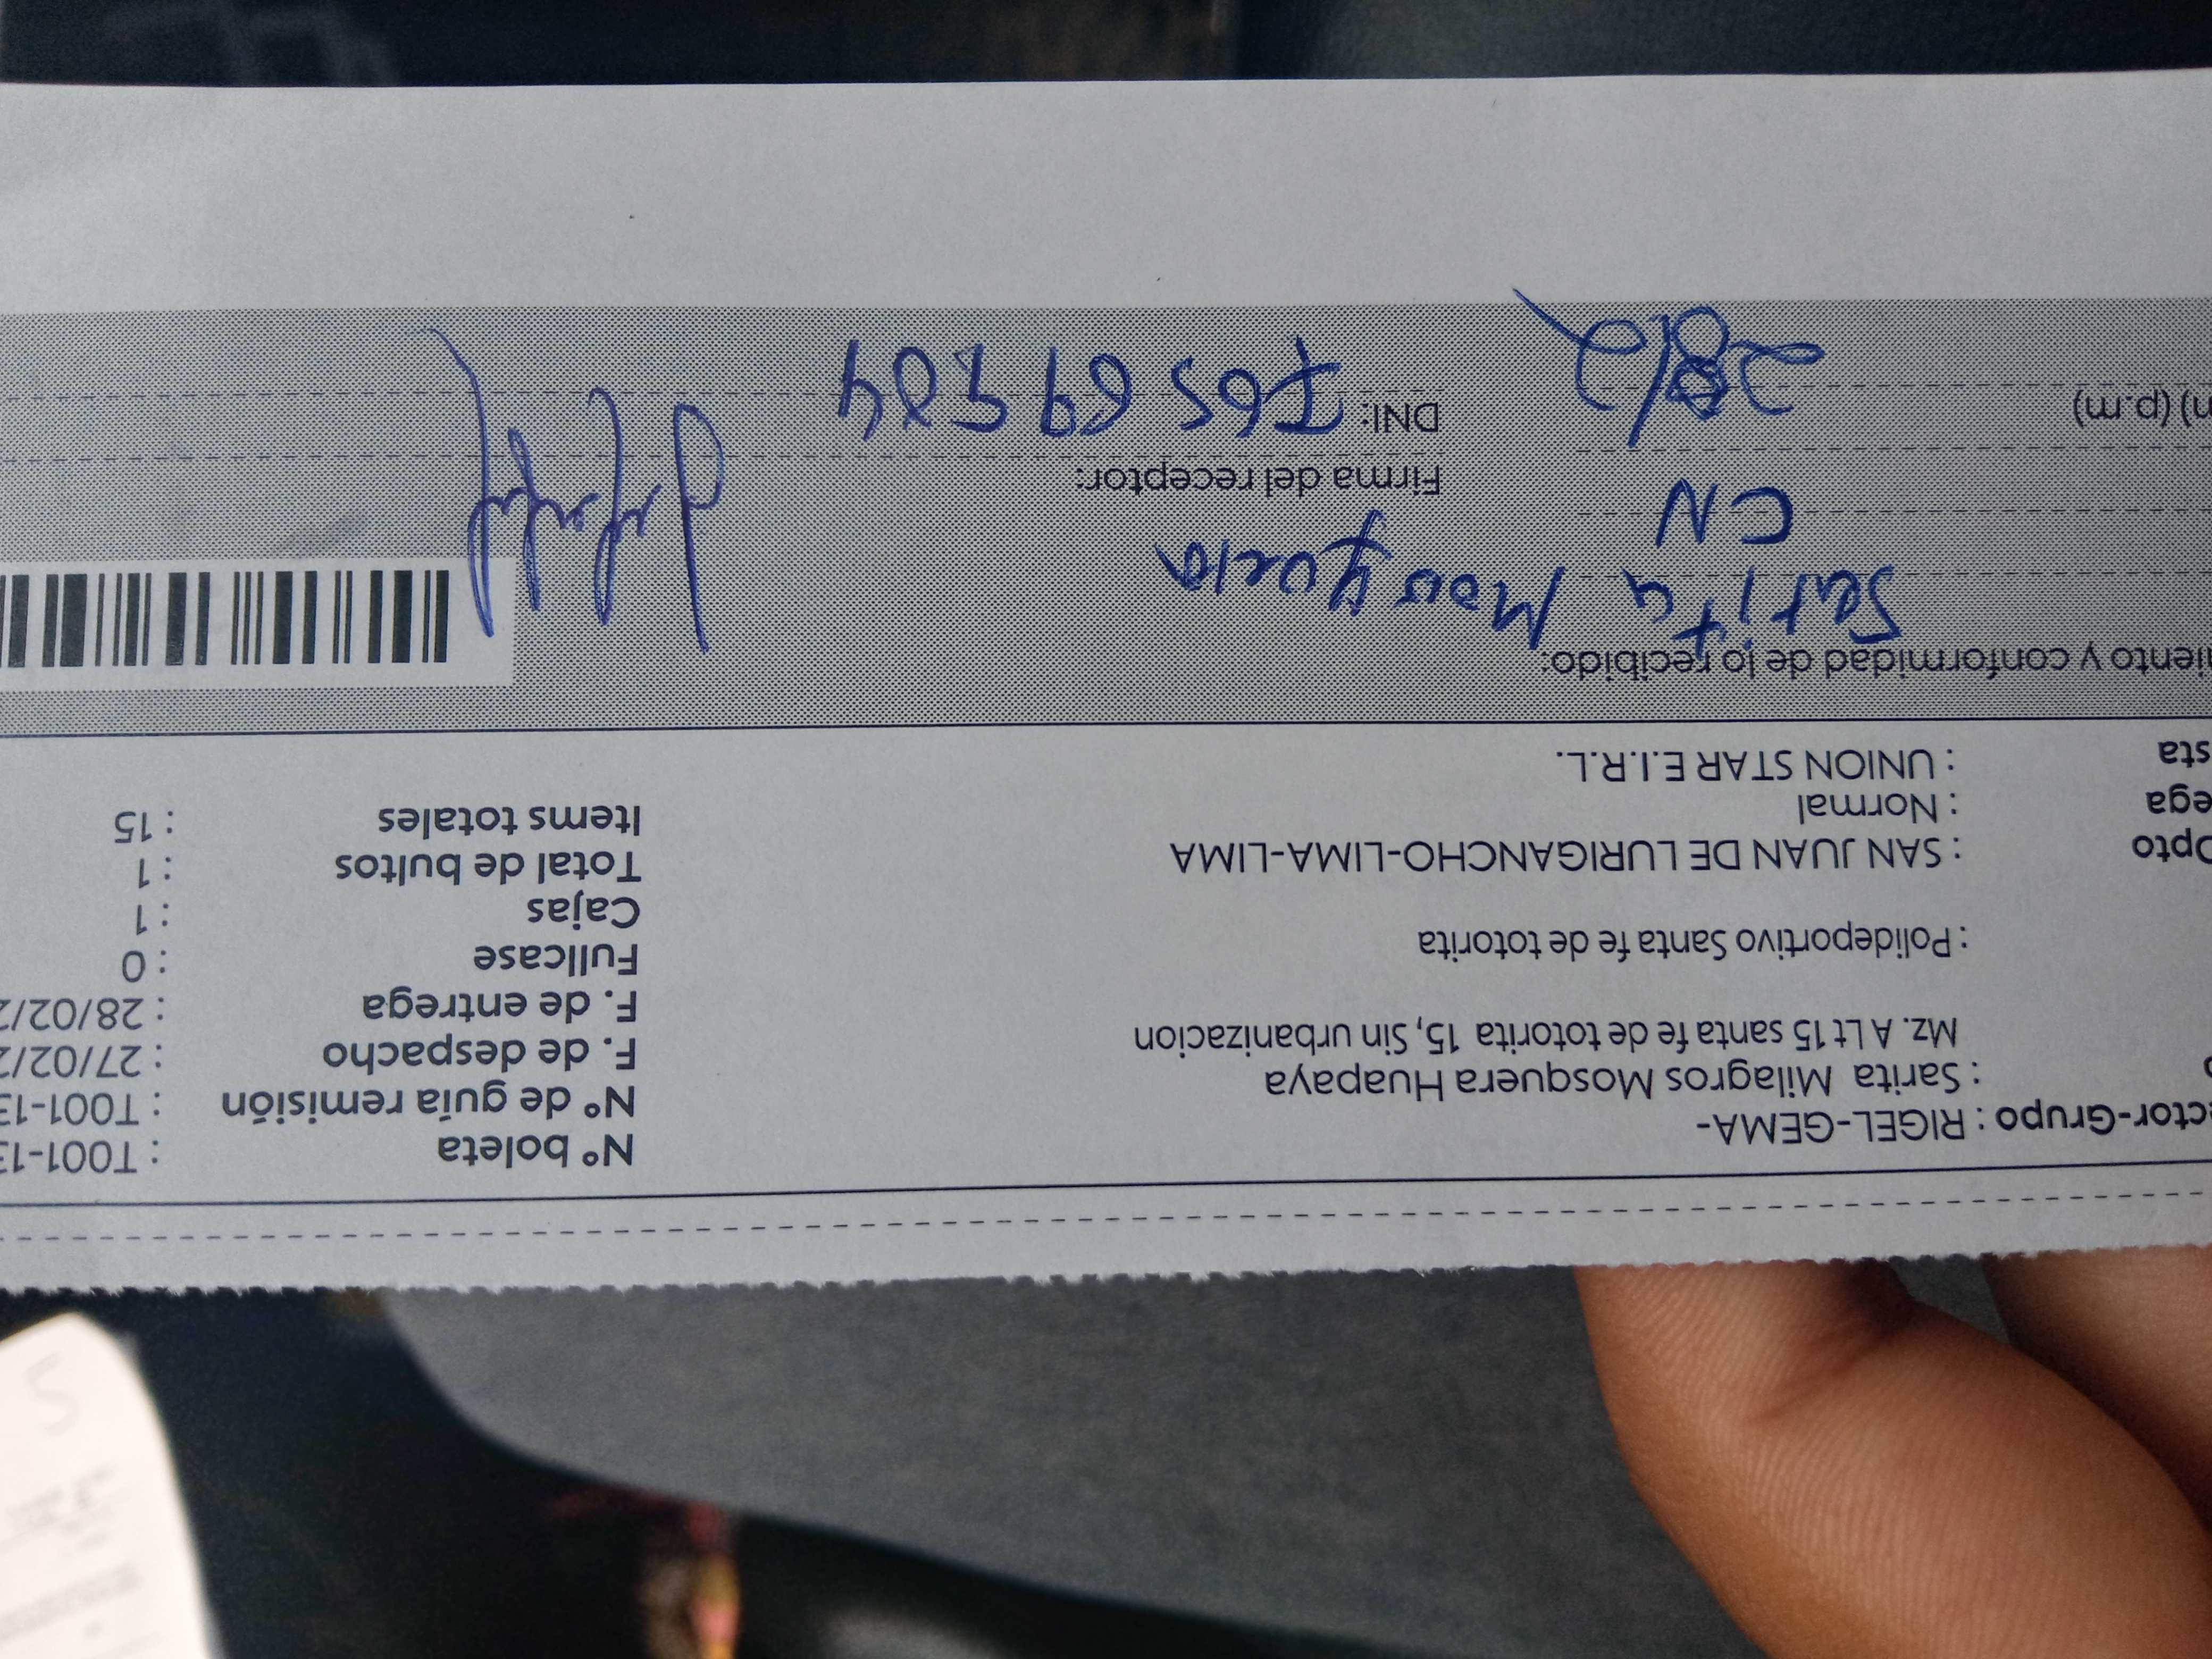 ctor-Grupo : RIGEL-GEMA-
: Sarita Milagros Mosquera Huapaya
Mz. A Lt 15 santa fe de totorita 15, Sin urbanizacion
: Polideportivo Santa fe de totorita
Dpto : SAN JUAN DE LURIGANCHO-LIMA-LIMA
ega : Normal
sta : UNION STAR E.I.R.L.
N° boleta : T001-13
N° de guía remisión : T001-13
F. de despacho : 27/02/2
F. de entrega : 28/02/2
Fullcase : 0
Cajas : 1
Total de bultos : 1
Items totales : 15
iento y conformidad de lo recibido:
CN
Firma del receptor:
) (p.m) 28/2
DNI:
5